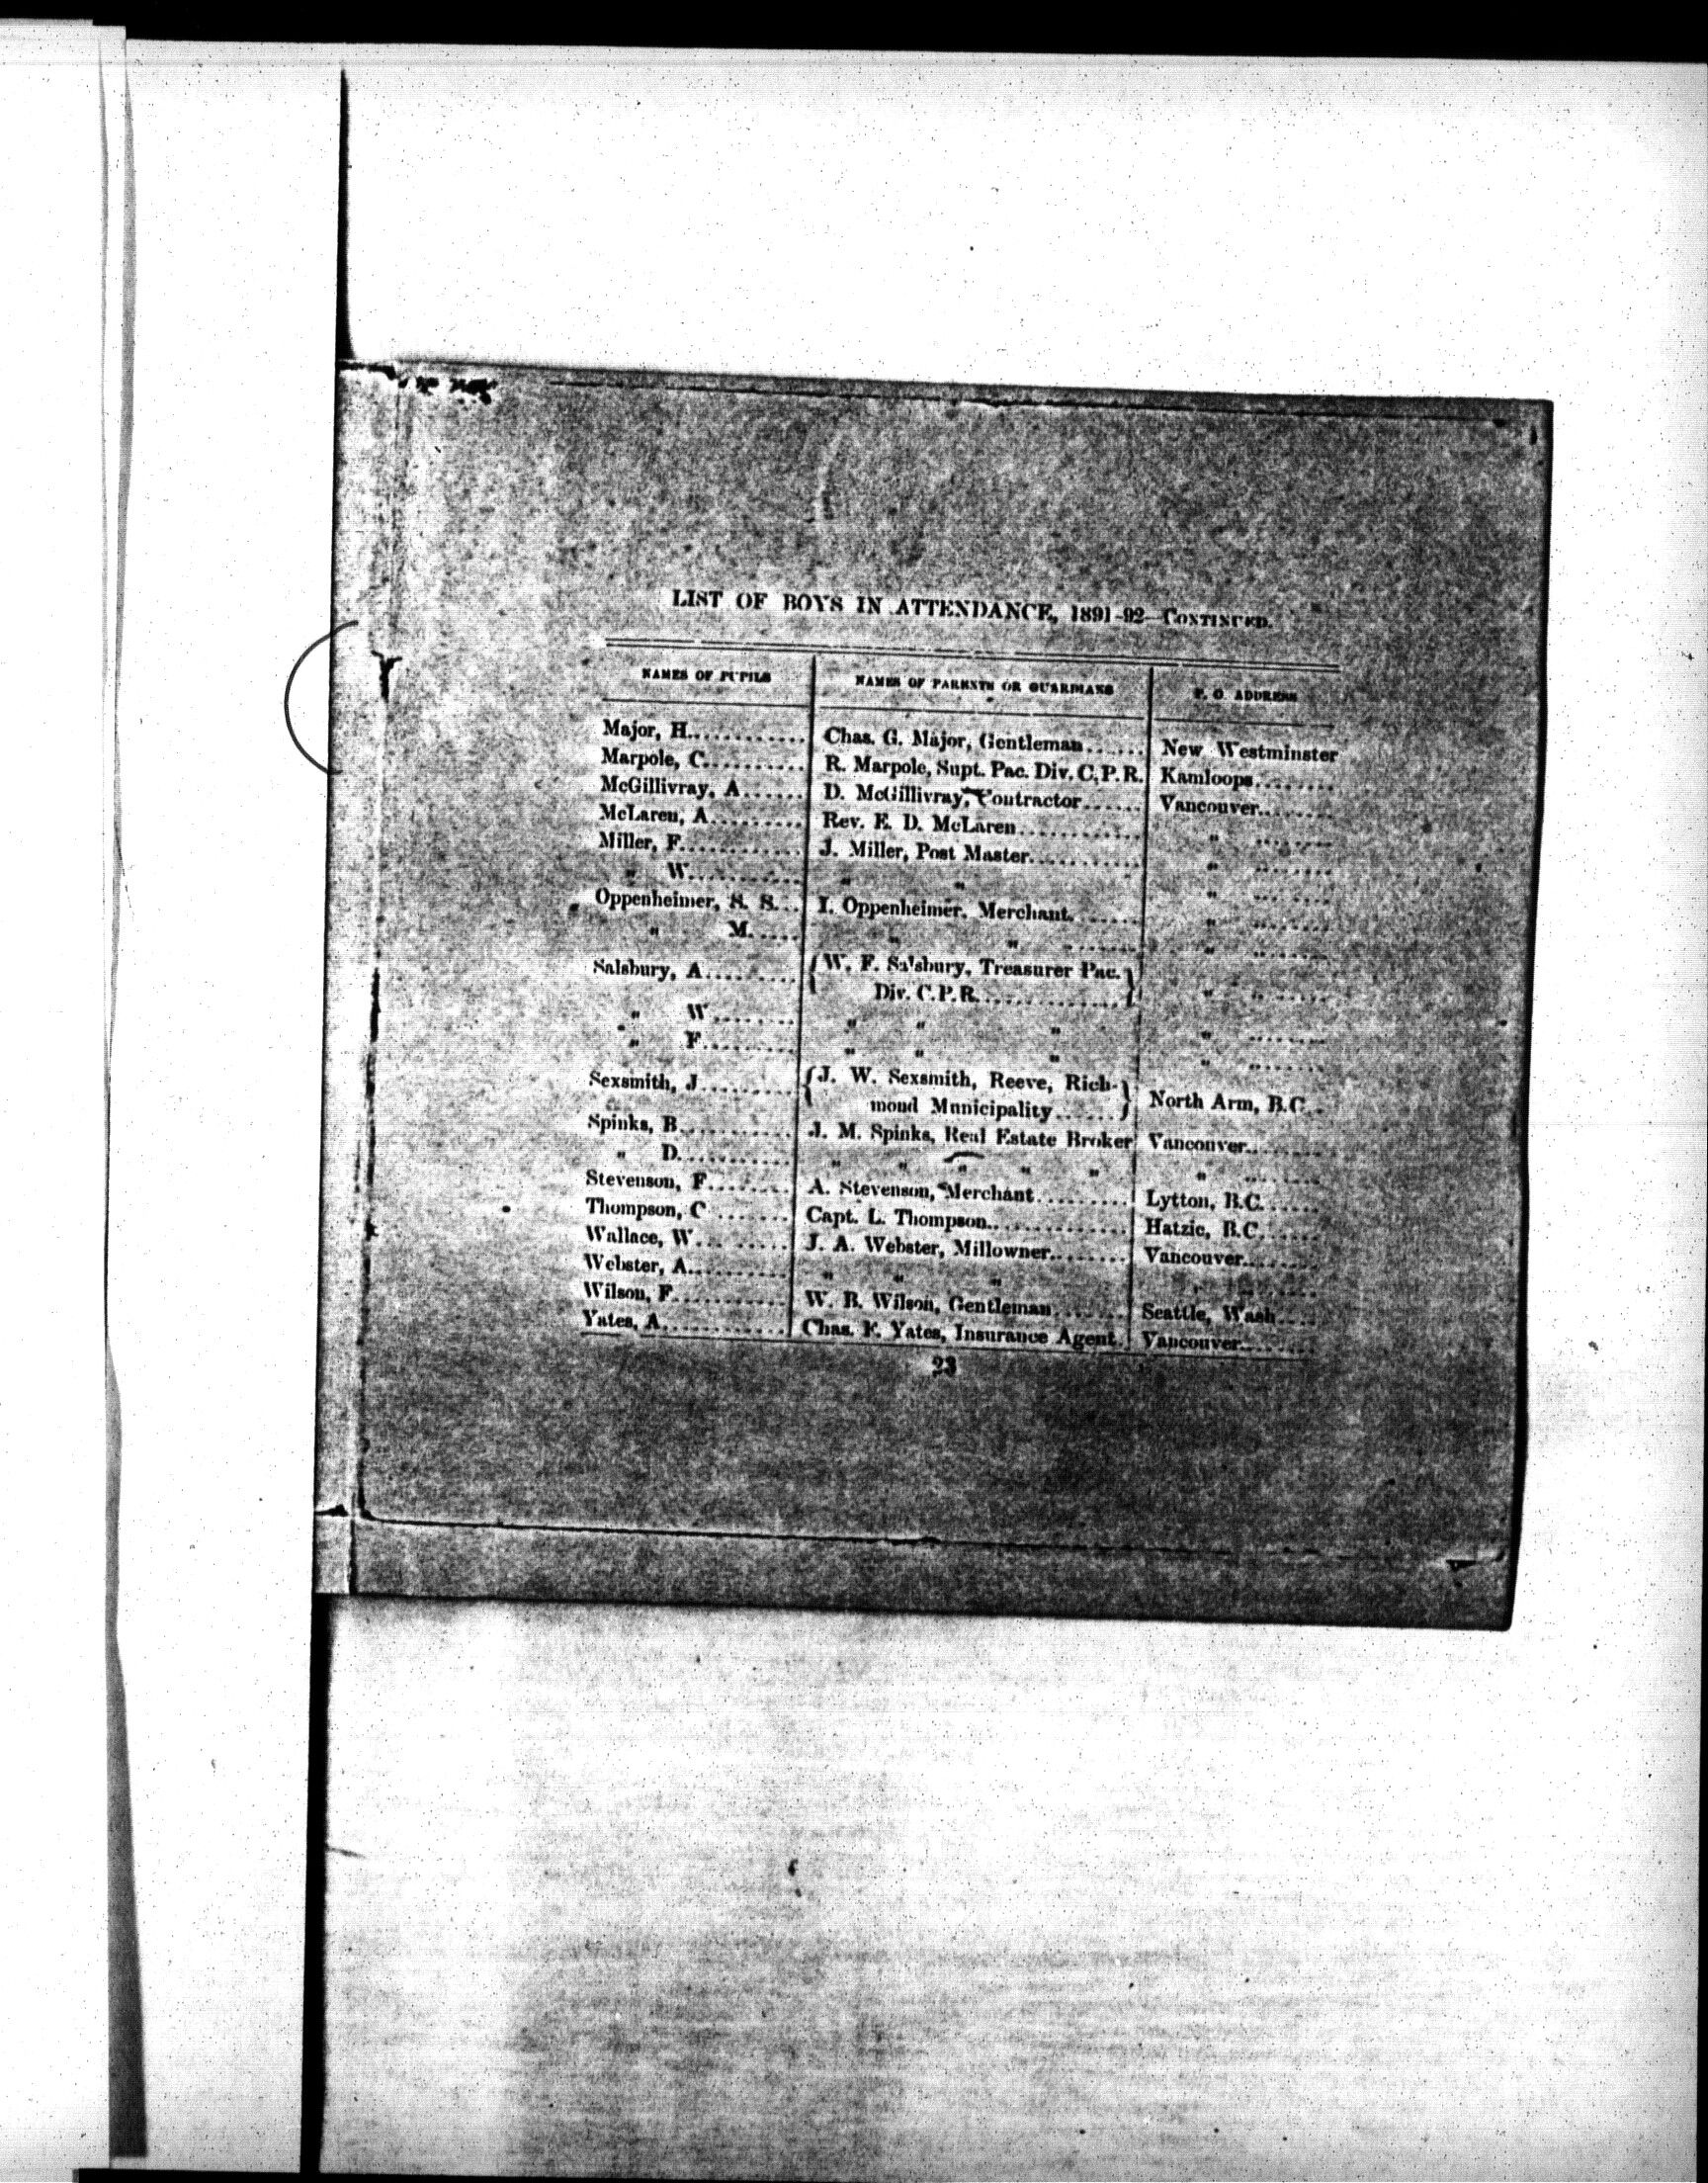 LIST OF BOYS IN ATTENDANCE, 1891-92—CONTINUED.
NAMES OF PUPILS NAMES OF PARENTS OR GUARDIANS P. O. ADDRESS
Major, H............ Chas. G. Major, Gentleman...... New Westminster
Marpole, C.......... R. Marpole, Supt. Pac. Div. C.P.R. Kamloops........
McGillivray, A...... D. McGillivray, Contractor...... Vancouver........
McLaren, A......... Rev. E. D. McLaren............ " ........
Miller, F............ J. Miller, Post Master........... " ........
" W........... " " " ........
Oppenheimer, S. S... I. Oppenheimer, Merchant....... " ........
" M..... " " ....... " ........
Salsbury, A......... { W. F. Salsbury, Treasurer Pac. }
Div. C.P.R.............. " ........
" W........ " " " " ........
" F......... " " " " ........
Sexsmith, J......... { J. W. Sexsmith, Reeve, Rich- }
mond Municipality...... North Arm, B.C...
Spinks, B........... J. M. Spinks, Real Estate Broker Vancouver........
" D........... " " " " " " ........
Stevenson, F........ A. Stevenson, Merchant......... Lytton, B.C......
Thompson, C ....... Capt. L. Thompson............. Hatzic, B.C......
Wallace, W... ...... J. A. Webster, Millowner........ Vancouver........
Webster, A.......... " " " " ........
Wilson, F............ W. B. Wilson, Gentleman....... Seattle, Wash....
Yates, A............. Chas. F. Yates, Insurance Agent. Vancouver........
23